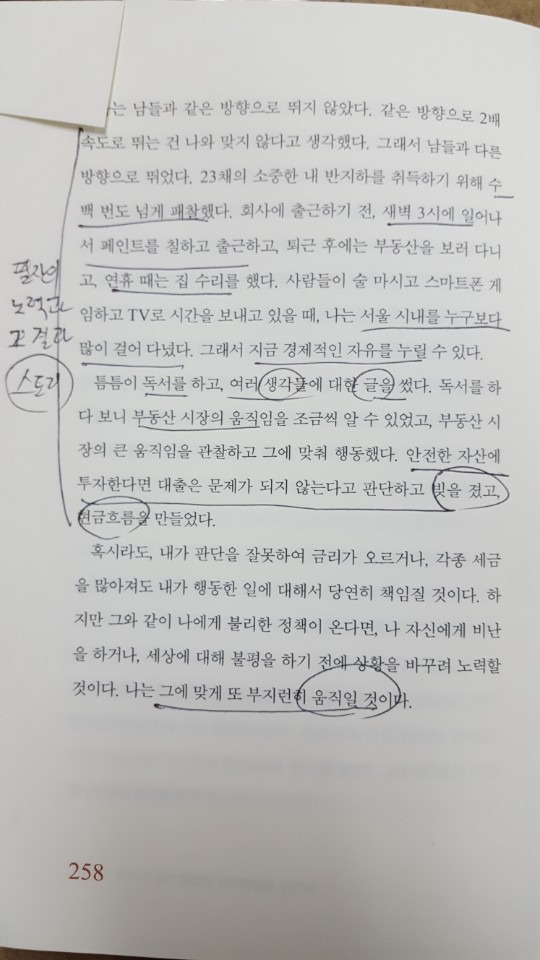 는 남들과 같은 방향으로 뛰지 않았다. 같은 방향으로 2배
속도로 뛰는 건 나와 맞지 않다고 생각했다. 그래서 남들과 다른
방향으로 뛰었다. 23채의 소중한 내 반지하를 취득하기 위해 수
백 번도 넘게 패찰했다. 회사에 출근하기 전, 새벽 3시에 일어나
서 페인트를 칠하고 출근하고, 퇴근 후에는 부동산을 보러 다니
고, 연휴 때는 집 수리를 했다. 사람들이 술 마시고 스마트폰 게
임하고 TV로 시간을 보내고 있을 때, 나는 서울 시내를 누구보다
많이 걸어 다녔다. 그래서 지금 경제적인 자유를 누릴 수 있다.
틈틈이 독서를 하고, 여러 생각들에 대한 글을 썼다. 독서를 하
다 보니 부동산 시장의 움직임을 조금씩 알 수 있었고, 부동산 시
장의 큰 움직임을 관찰하고 그에 맞춰 행동했다. 안전한 자산에
투자한다면 대출은 문제가 되지 않는다고 판단하고 빚을 졌고,
현금흐름을 만들었다.
혹시라도, 내가 판단을 잘못하여 금리가 오르거나, 각종 세금
을 많아져도 내가 행동한 일에 대해서 당연히 책임질 것이다. 하
지만 그와 같이 나에게 불리한 정책이 온다면, 나 자신에게 비난
을 하거나, 세상에 대해 불평을 하기 전에 상황을 바꾸려 노력할
것이다. 나는 그에 맞게 또 부지런히 움직일 것이다.
필자의
노력과
그 결과
스토리
258